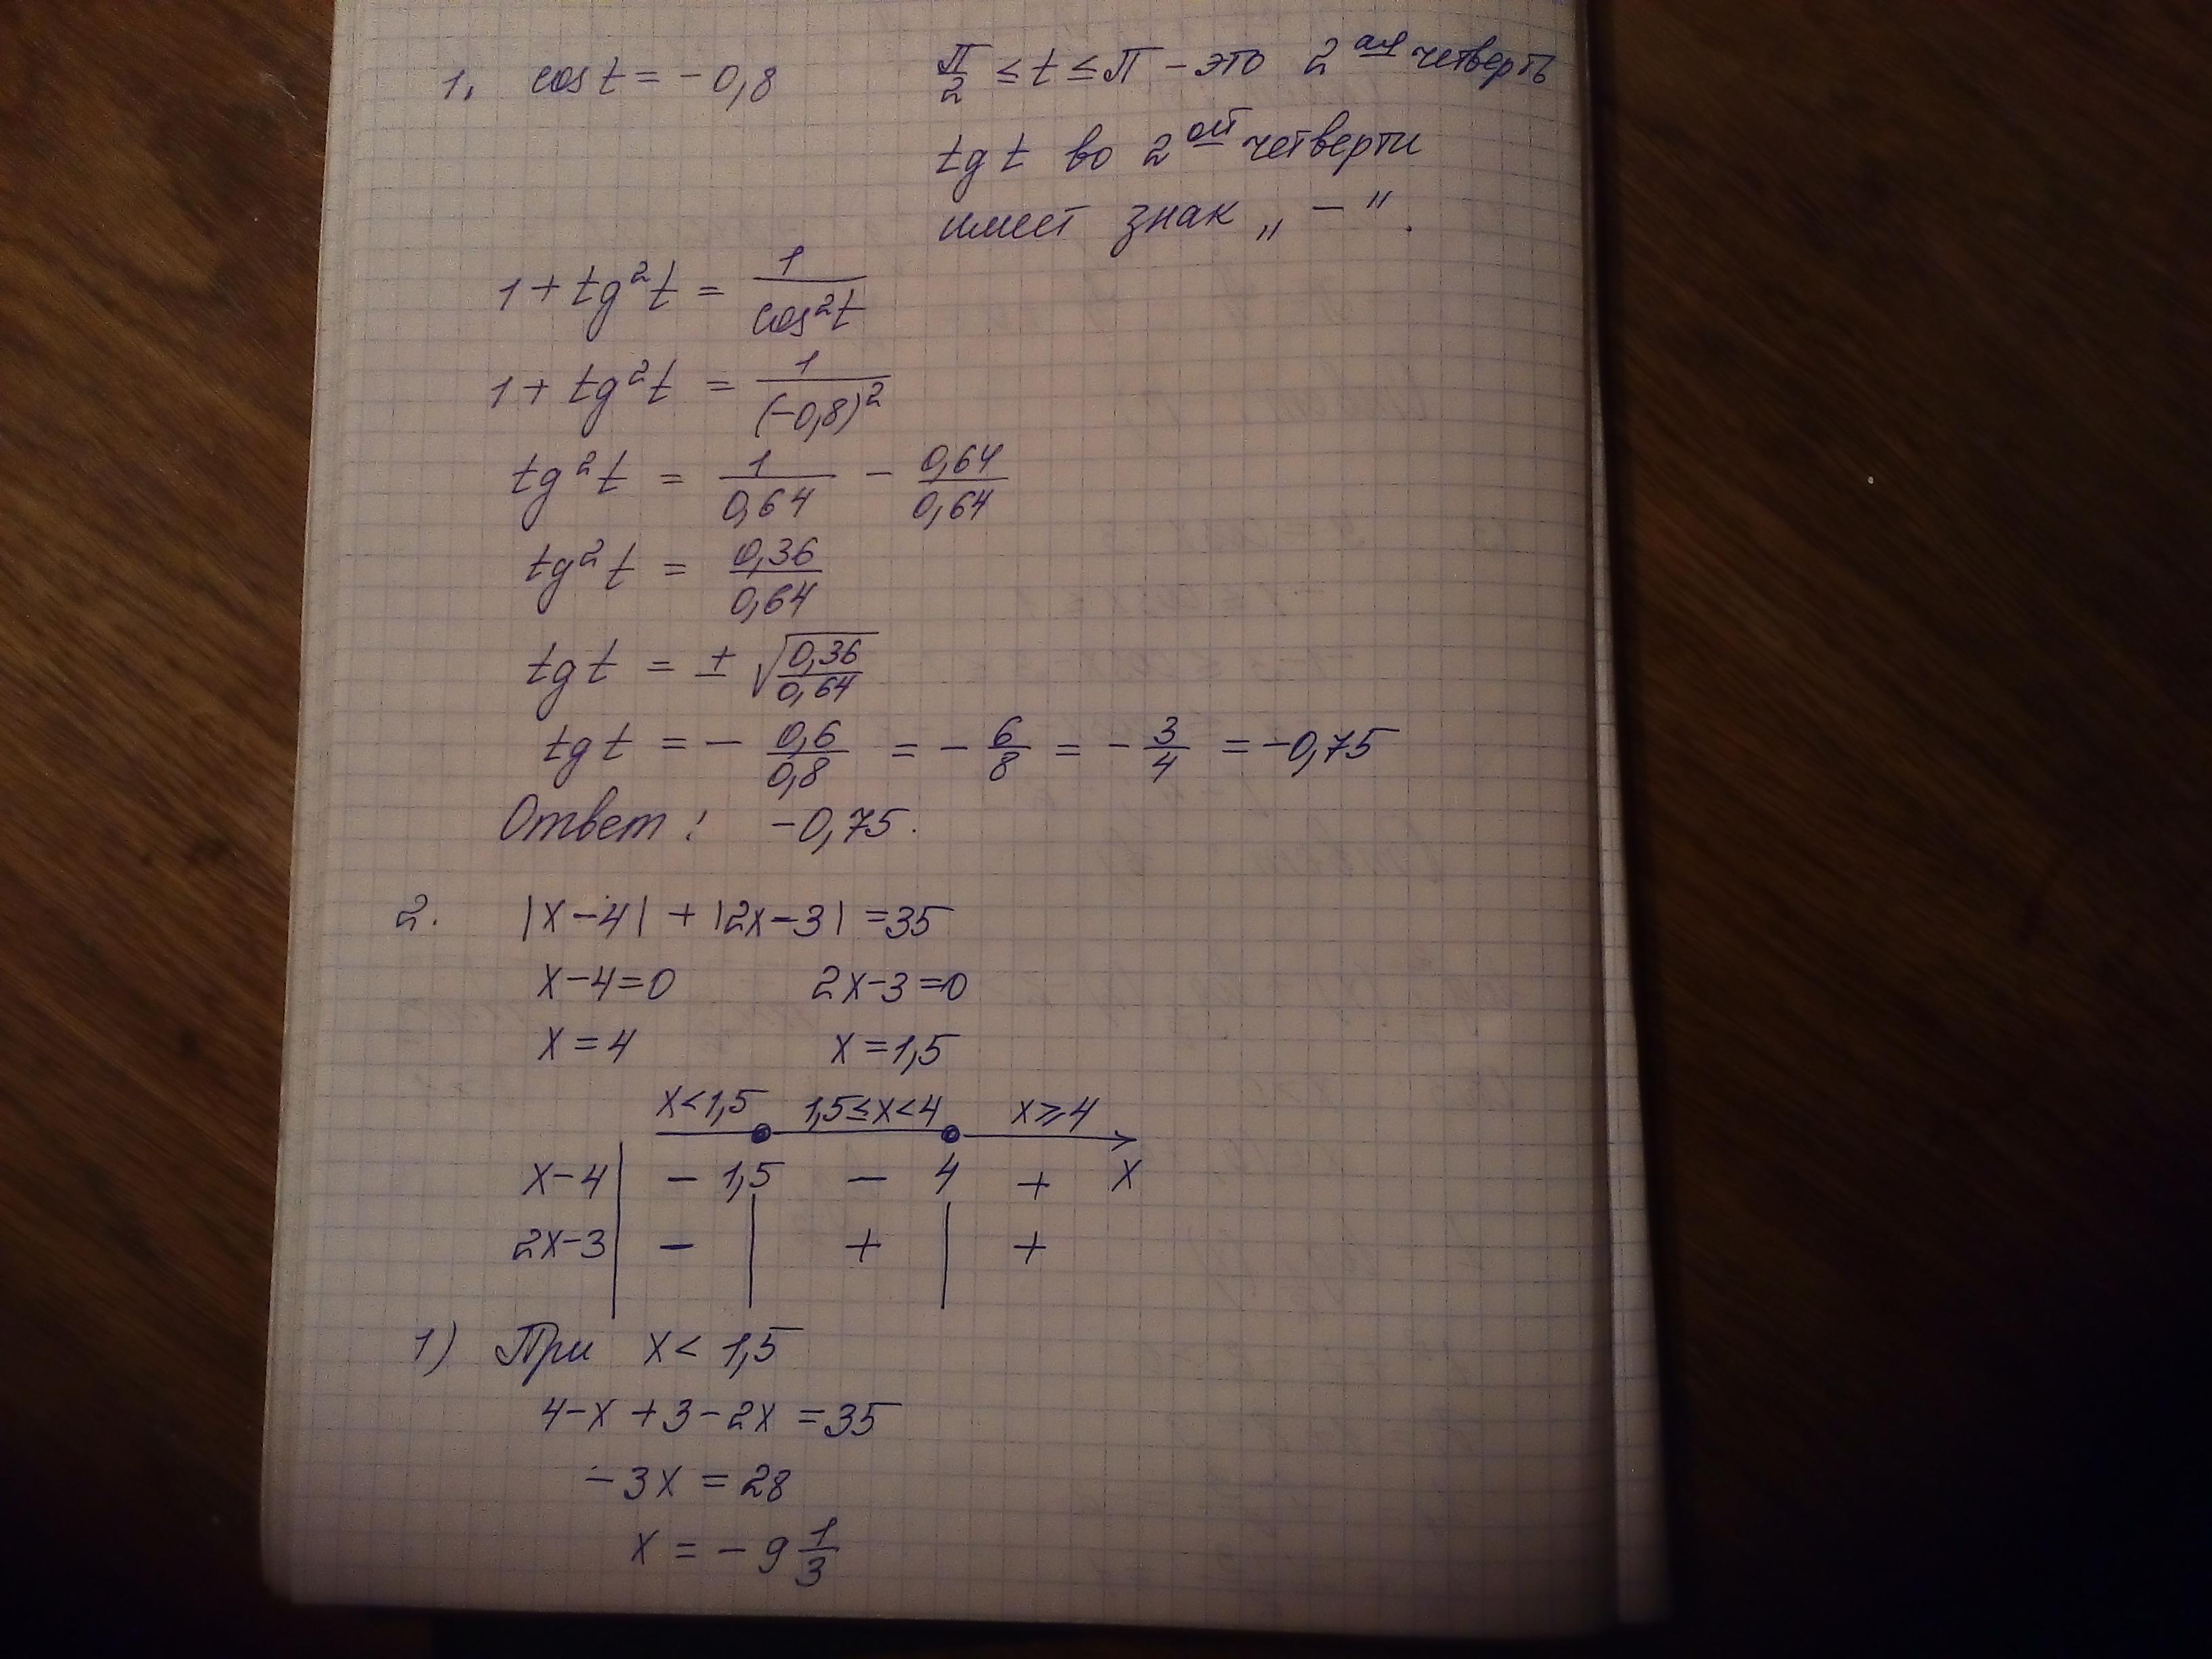 1. cos t = -0,8   π/2 ≤ t ≤ π - это 2ая четверть
tg t во 2ой четверти
имеет знак „ - ".
1 + tg²t = 1/cos²t
1 + tg²t = 1/(-0,8)²
tg²t = 1/0,64 - 0,64/0,64
tg²t = 0,36/0,64
tg t = ± √(0,36/0,64)
tg t = - 0,6/0,8 = - 6/8 = - 3/4 = -0,75
Ответ: -0,75.
2. |x-4| + |2x-3| = 35
x-4=0   2x-3=0
x=4   x=1,5
x<1,5   1,5≤x<4   x≥4
x-4 | - 1,5 - 4 + x
2x-3 | - | + | +
1) При x < 1,5
4-x+3-2x=35
-3x = 28
x = -9 1/3